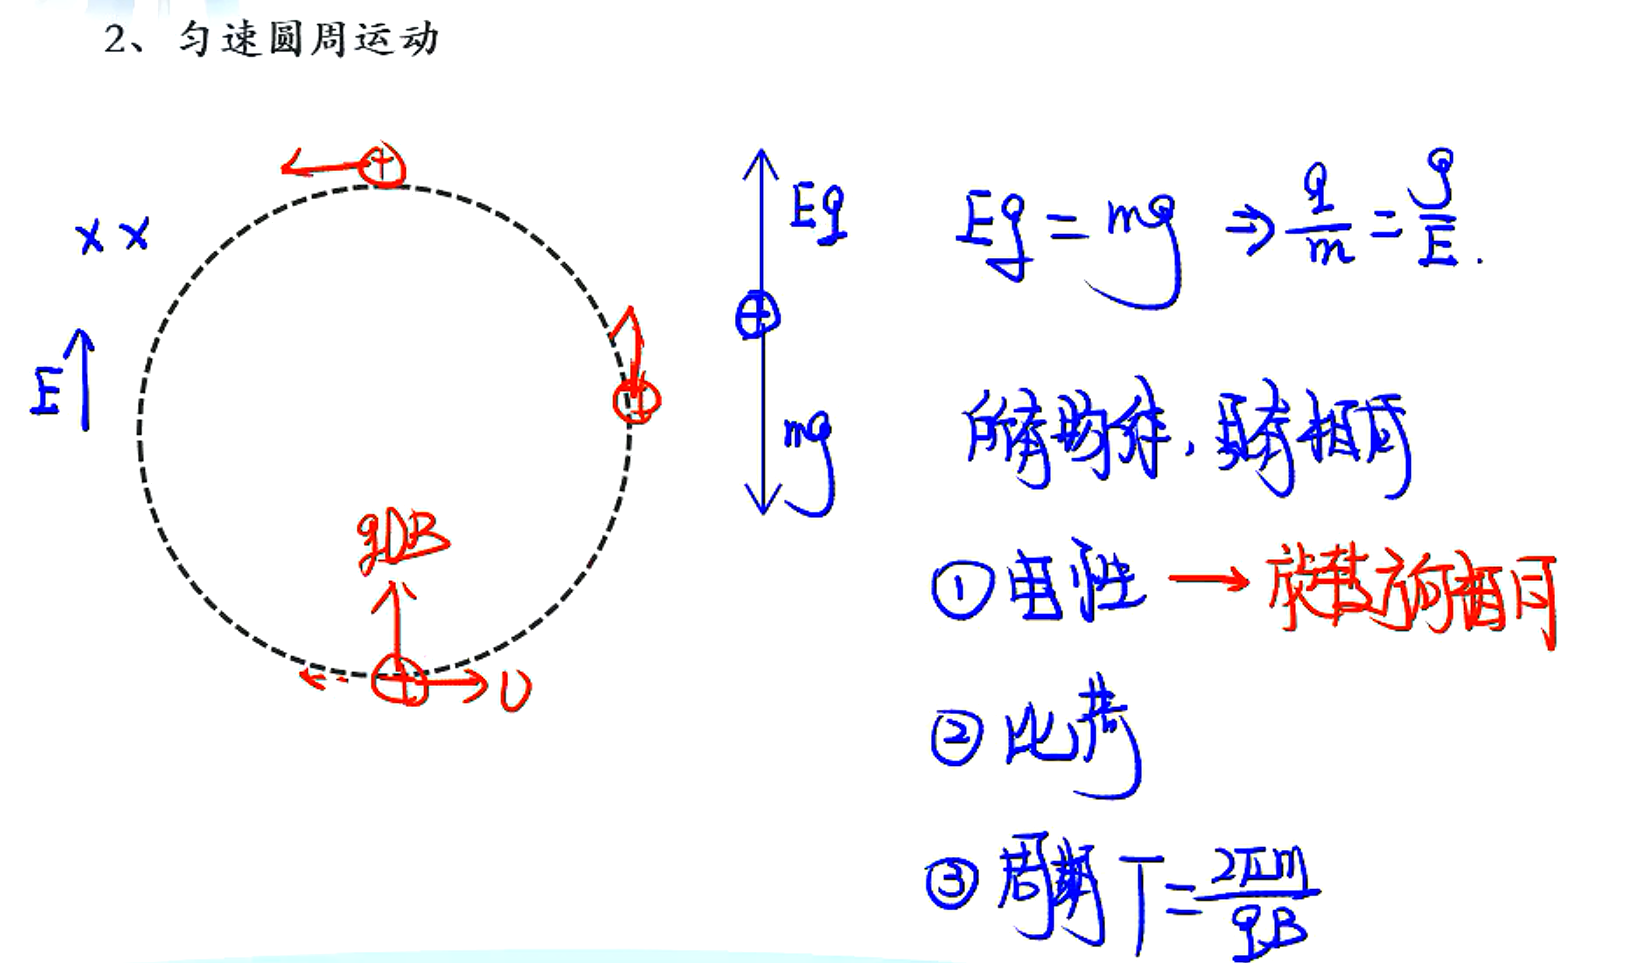 2、匀速圆周运动
××
E
qυB
υ
Eq
mg
Eq = mg ⇒ q/m = g/E.
所有物体，具有相同
①电性 → 旋转方向相同
②比荷
③周期 T = 2πm/qB